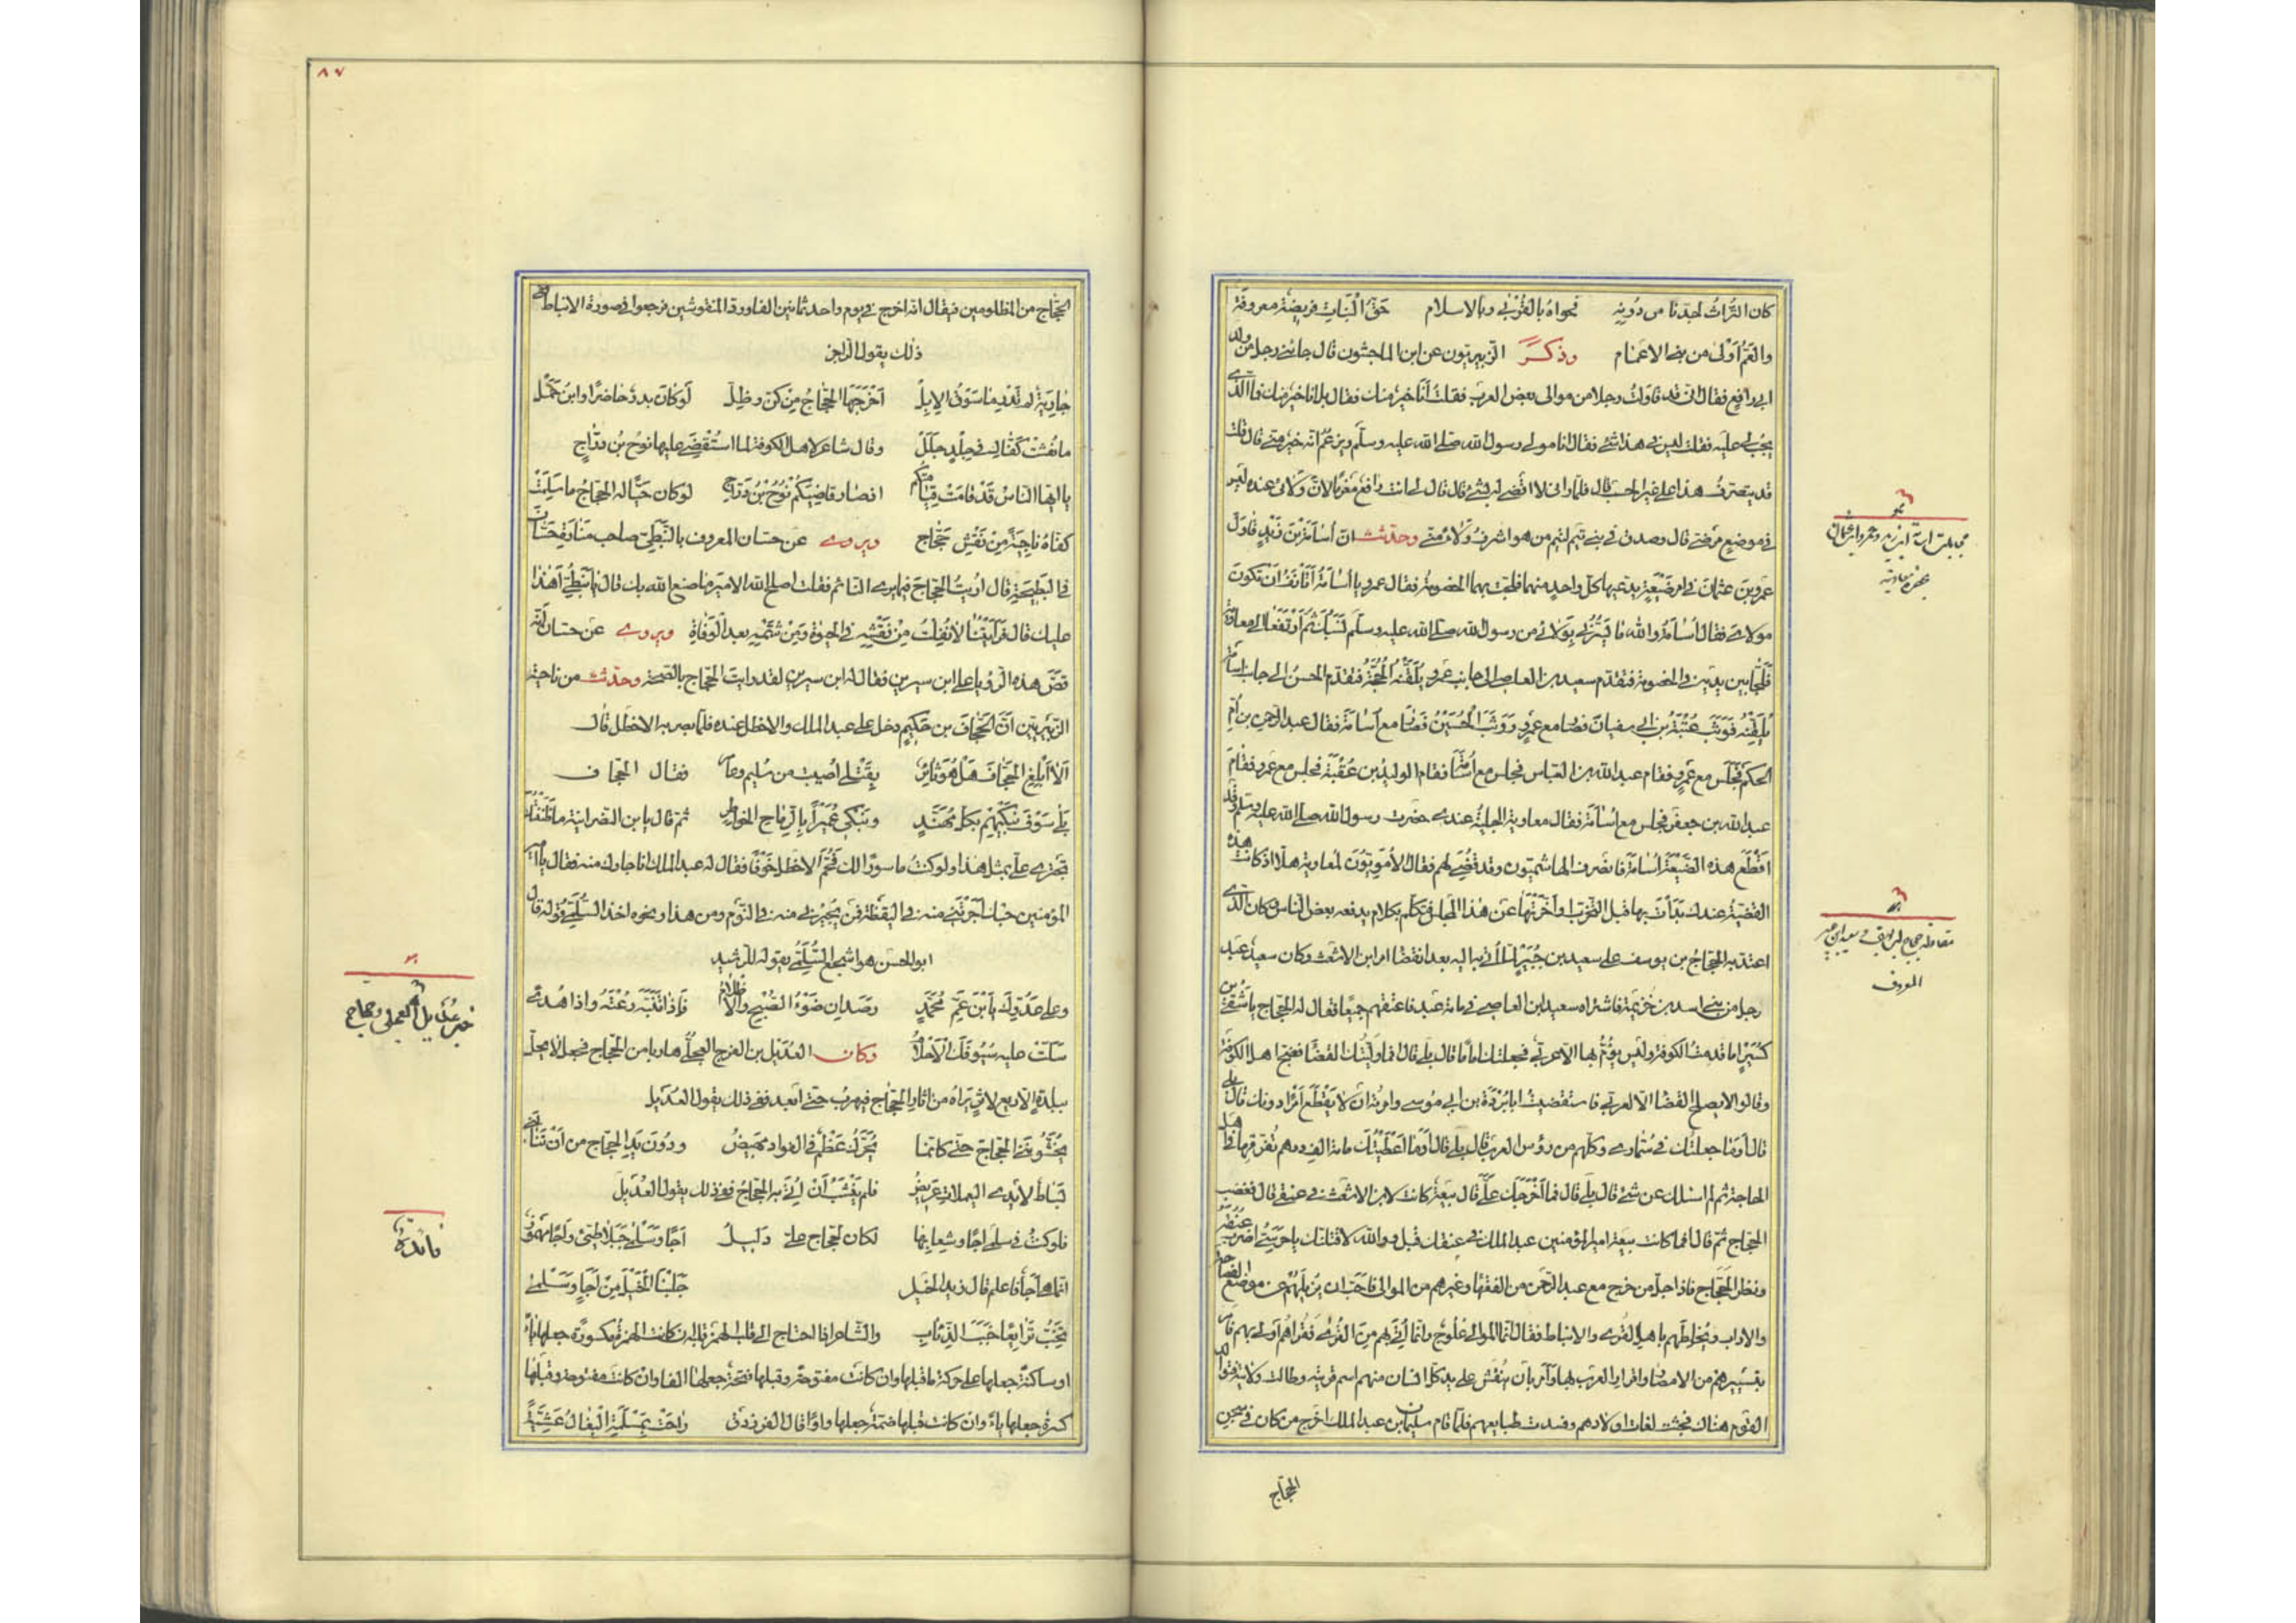 كان التراث لجدنا من دونه فحواه بالقربى وبالاسلام حق البنات فريضة معروفة
والعم اولى من بنى الاعمام وذكر الزبيريون عن ابن الماجشون قال جائنى رجل من ولد
ابى رافع فقال انى قد قاولت رجلا من موالى بعض العرب فقلت أنا خير منك فقال بل انا خير منك فما الذى
يجب لى عليه فقلت ليس فى هذا شئ فقال انا مولى رسول الله صلى الله عليه وسلم ويزعم انه خير منى قال قلت
قد يتصرف هذا على غير الحسب قال فلما رانى لا اقضى له بشئ قال قال لى انت دافع مغرما لان ولائى عنده ليس
فى موضع مرضى قال وصدق فى بنى تيم لتيم من هو اشرف ولاء منى وحدثت ان اسامة بن زيد قاول
عمرو بن عثمان فى امر ضيعة يدعيها كل واحد منهما فلجت بهما الخصومة فقال عمرو يا اسامة أتأنف ان تكون
مولاى فقال اسامة والله ما يسرنى بولائى من رسول الله صلى الله عليه وسلم نسبك ثم ارتفعا الى معاوية
فلجا بين يديه فى الخصومة فتقدم سعيد بن العاص الى جانب عمرو يلقنه الحجة فتقدم الحسن الى جانب اسامة
يلقنه فوثب عتبة بن ابى سفيان فصار مع عمرو ووثب الحسين فصار مع اسامة فقال عبد الرحمن بن ام
الحكم فجلس مع عمرو فقام عبد الله بن العباس فجلس مع اسامة فقام الوليد بن عقبة فجلس مع عمرو فقام
عبد الله بن جعفر فجلس مع اسامة فقال معاوية الجلية عندى حضرت رسول الله صلى الله عليه وسلم وقد
اقطع هذه الضيعة اسامة فانصرف الهاشميون وقد قضى لهم فقال الامويون لمعاوية هلا اذ كانت هذه
القضية عندك بدأت بها قبل التحزب او أخرتها عن هذا المجلس فتكلم بكلام يدفعه بعض الناس وكان الذى
اعتد به الحجاج بن يوسف على سعيد بن جبير لما أتى به اليه بعد انقضاء امر ابن الاشعث وكان سعيد عبد
رجل من بنى اسد بن خزيمة فاشتراه سعيد ابن العاصى فى مائة عبد فاعتقهم جميعا فقال له الحجاج يا شقى بن
كسير اما قدمت الكوفة وليس يؤم بها الا عربى فجعلتك اماما قال بلى قال فما وليتك القضاء فضج اهل الكوفة
وقالوا لا يصلح القضا الا لعربى فاستقضيت ابا بردة بن ابى موسى وامرته ان لا يقطع امرا دونك قال بلى
قال أوما جعلتك فى سمارى وكلهم من رؤس العرب قال بلى قال أوما اعطيتك مائة الف درهم تفرقها فى اهل
الحاجة ثم لم اسئلك عن شئ قال بلى قال فما أخرجك على قال بيعة كانت لابن الاشعث فى عنقى قال فغضب
الحجاج ثم قال أفما كانت بيعة امير المؤمنين عبد الملك فى عنقك قبل والله لاقتلنك يا حرسى اضرب عنقه
ونظر الحجاج فاذا جل من خرج مع عبد الرحمن من الفقها وغيرهم من الموالى فاحب ان يزيلهم عن موضع الفصاحة
والاداب ويخلطهم باهل القرى والانباط فقال انما الموالى علوج وانما أتى بهم من القرى فقراهم اولى بهم فامر
بتسييرهم من الامصار واقرار العرب بها وأمر بان ينقش على يد كل انسان منهم اسم قريته وطالت ولايته فتوالد
القوم هناك فخبثت لغات اولادهم وفسدت طبايعهم فلما قام سليمان بن عبد الملك اخرج من كان فى سجن
الحجاج
مقاولة حجاج بن يوسف و سعيد ابن جبير
المعروف
٨٧
الحجاج من المظلومين فيقال انه اخرج فى يوم واحد ثمانين الفا ورد المنقوشين فرجعوا فى صورة الانباط ففى
ذلك يقول الراجز
جارية لم تدر ما سوق الابل أخرجها الحجاج من كن وظل لو كان بدر حاضرا وابن حمل
ما نقشت كفاك فى جلد جلل وقال شاعر لاهل الكوفة لما استقضى عليها نوح بن دراج
يا ايها الناس قد قامت قيامتكم اذ صار قاضيكم نوح بن دراج لو كان حيا له الحجاج ما سلمت
كفاه ناجية من نقش حجاج ويروى عن حسان المعروف بالنبطى صاحب منارة حسان
فى البطيحة قال اريت الحجاج فيما يرى النائم فقلت اصلح الله الامير ما صنع الله بك قال يا نبطى أهذا
عليك قال فرايتنا لا نفلت من نقشه فى الحيوة ومن شتمه بعد الوفاة ويروى عن حسان انه
قص هذه الرؤيا على ابن سيرين فقال له ابن سيرين لقد رايت الحجاج بالصحة وحدثت من ناحية
الزبيريين ان الجحاف بن حكيم دخل على عبد الملك والاخطل عنده فلما بصر به الاخطل قال
ألا أبلغ الجحاف هل هو ثائر بقتلى اصيبت من سليم وعامر فقال الجحاف
بلى سوف نبكيهم بكل مهند ونبكى عميرا بالرماح الخواطر ثم قال يا ابن النصرانية ما ظننتك
تجترى على بمثل هذا ولو كنت ماسورا لك فحم الاخطل خوفا فقال له عبد الملك انا جارك منه فقال يا امير
المؤمنين هبك أجرتنى منه فى اليقظة فمن يجيرنى منه فى النوم ومن هذا ونحوه اخذ السلمى قوله قال
ابو الحسن هو اشجع السلمى بقوله للرشيد
وعلى عدوك يا ابن عم محمد رصدان ضوء الصبح والاظلام فاذا تنبه رعته واذا هدى
سلت عليه سيوفك الاحلام وكان العديل بن الفرج العجلى هاربا من الحجاج فجعل لا يحل
ببلدة الا ريع لاثر يراه من اثار الحجاج فيهرب حتى أبعد ففى ذلك يقول العديل
يخشوننى الحجاج حتى كانما يحرك عظم فى الفؤاد مهيض ودون يد الحجاج من أن تنالنى
بساط لايدى اليعملات عريض فلم ينشب أن أتى به الحجاج ففى ذلك يقول العديل
فلو كنت فى سلمى اجا وشعابها لكان لحجاج على دليل أجا وسلمى جبلا طيئ وأجا مهموز
انما هى أجأ فاعلم قال زيد الخيل جلبنا الخيل من أجإ وسلمى
تخب ترايعا خبب الذئاب والشاعر اذا احتاج الى قلب الهمزة قلبها ان كانت الهمزة مكسورة جعلها ياء
او ساكنة جعلها على حركة ما قبلها وان كانت مفتوحة وقبلها فتحة جعلها الفا وان كانت مفتوحة وقبلها
كسرة جعلها ياء وان كانت قبلها ضمة جعلها واوا قال الفرزدق راحت بمسلمة البغال عشية
خبر عديل العجلى وحجاج
فائدة